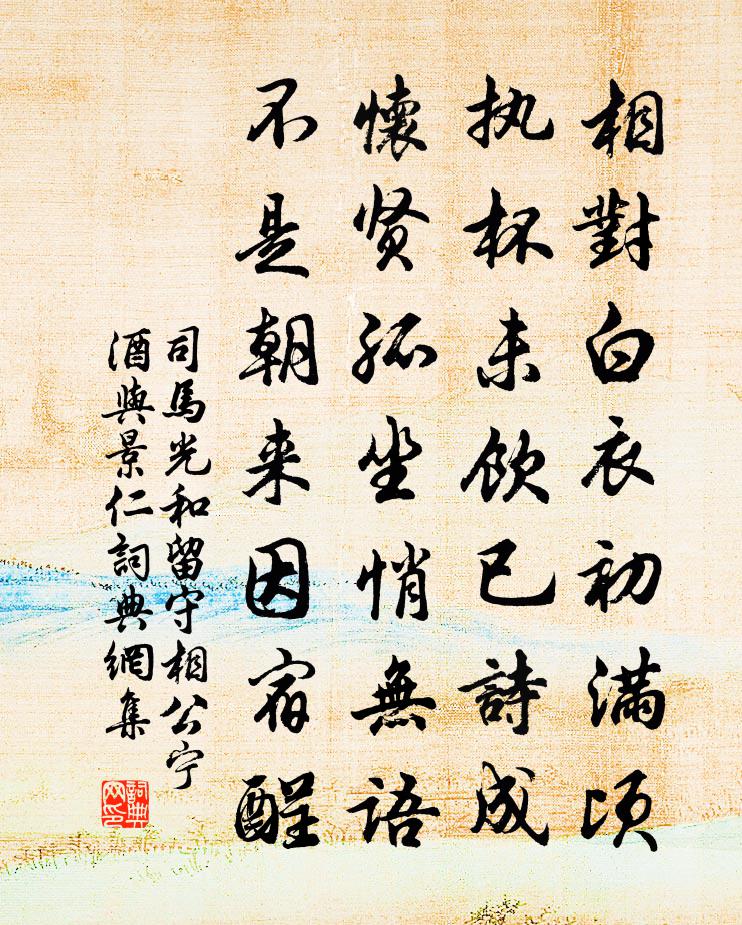 相對白衣初滿頃
执杯未飲已詩成
懷贤孤坐悄無語
不是朝来因宿醒
司馬光和留守相公宁
酒與景仁詞典網集
詞典网印